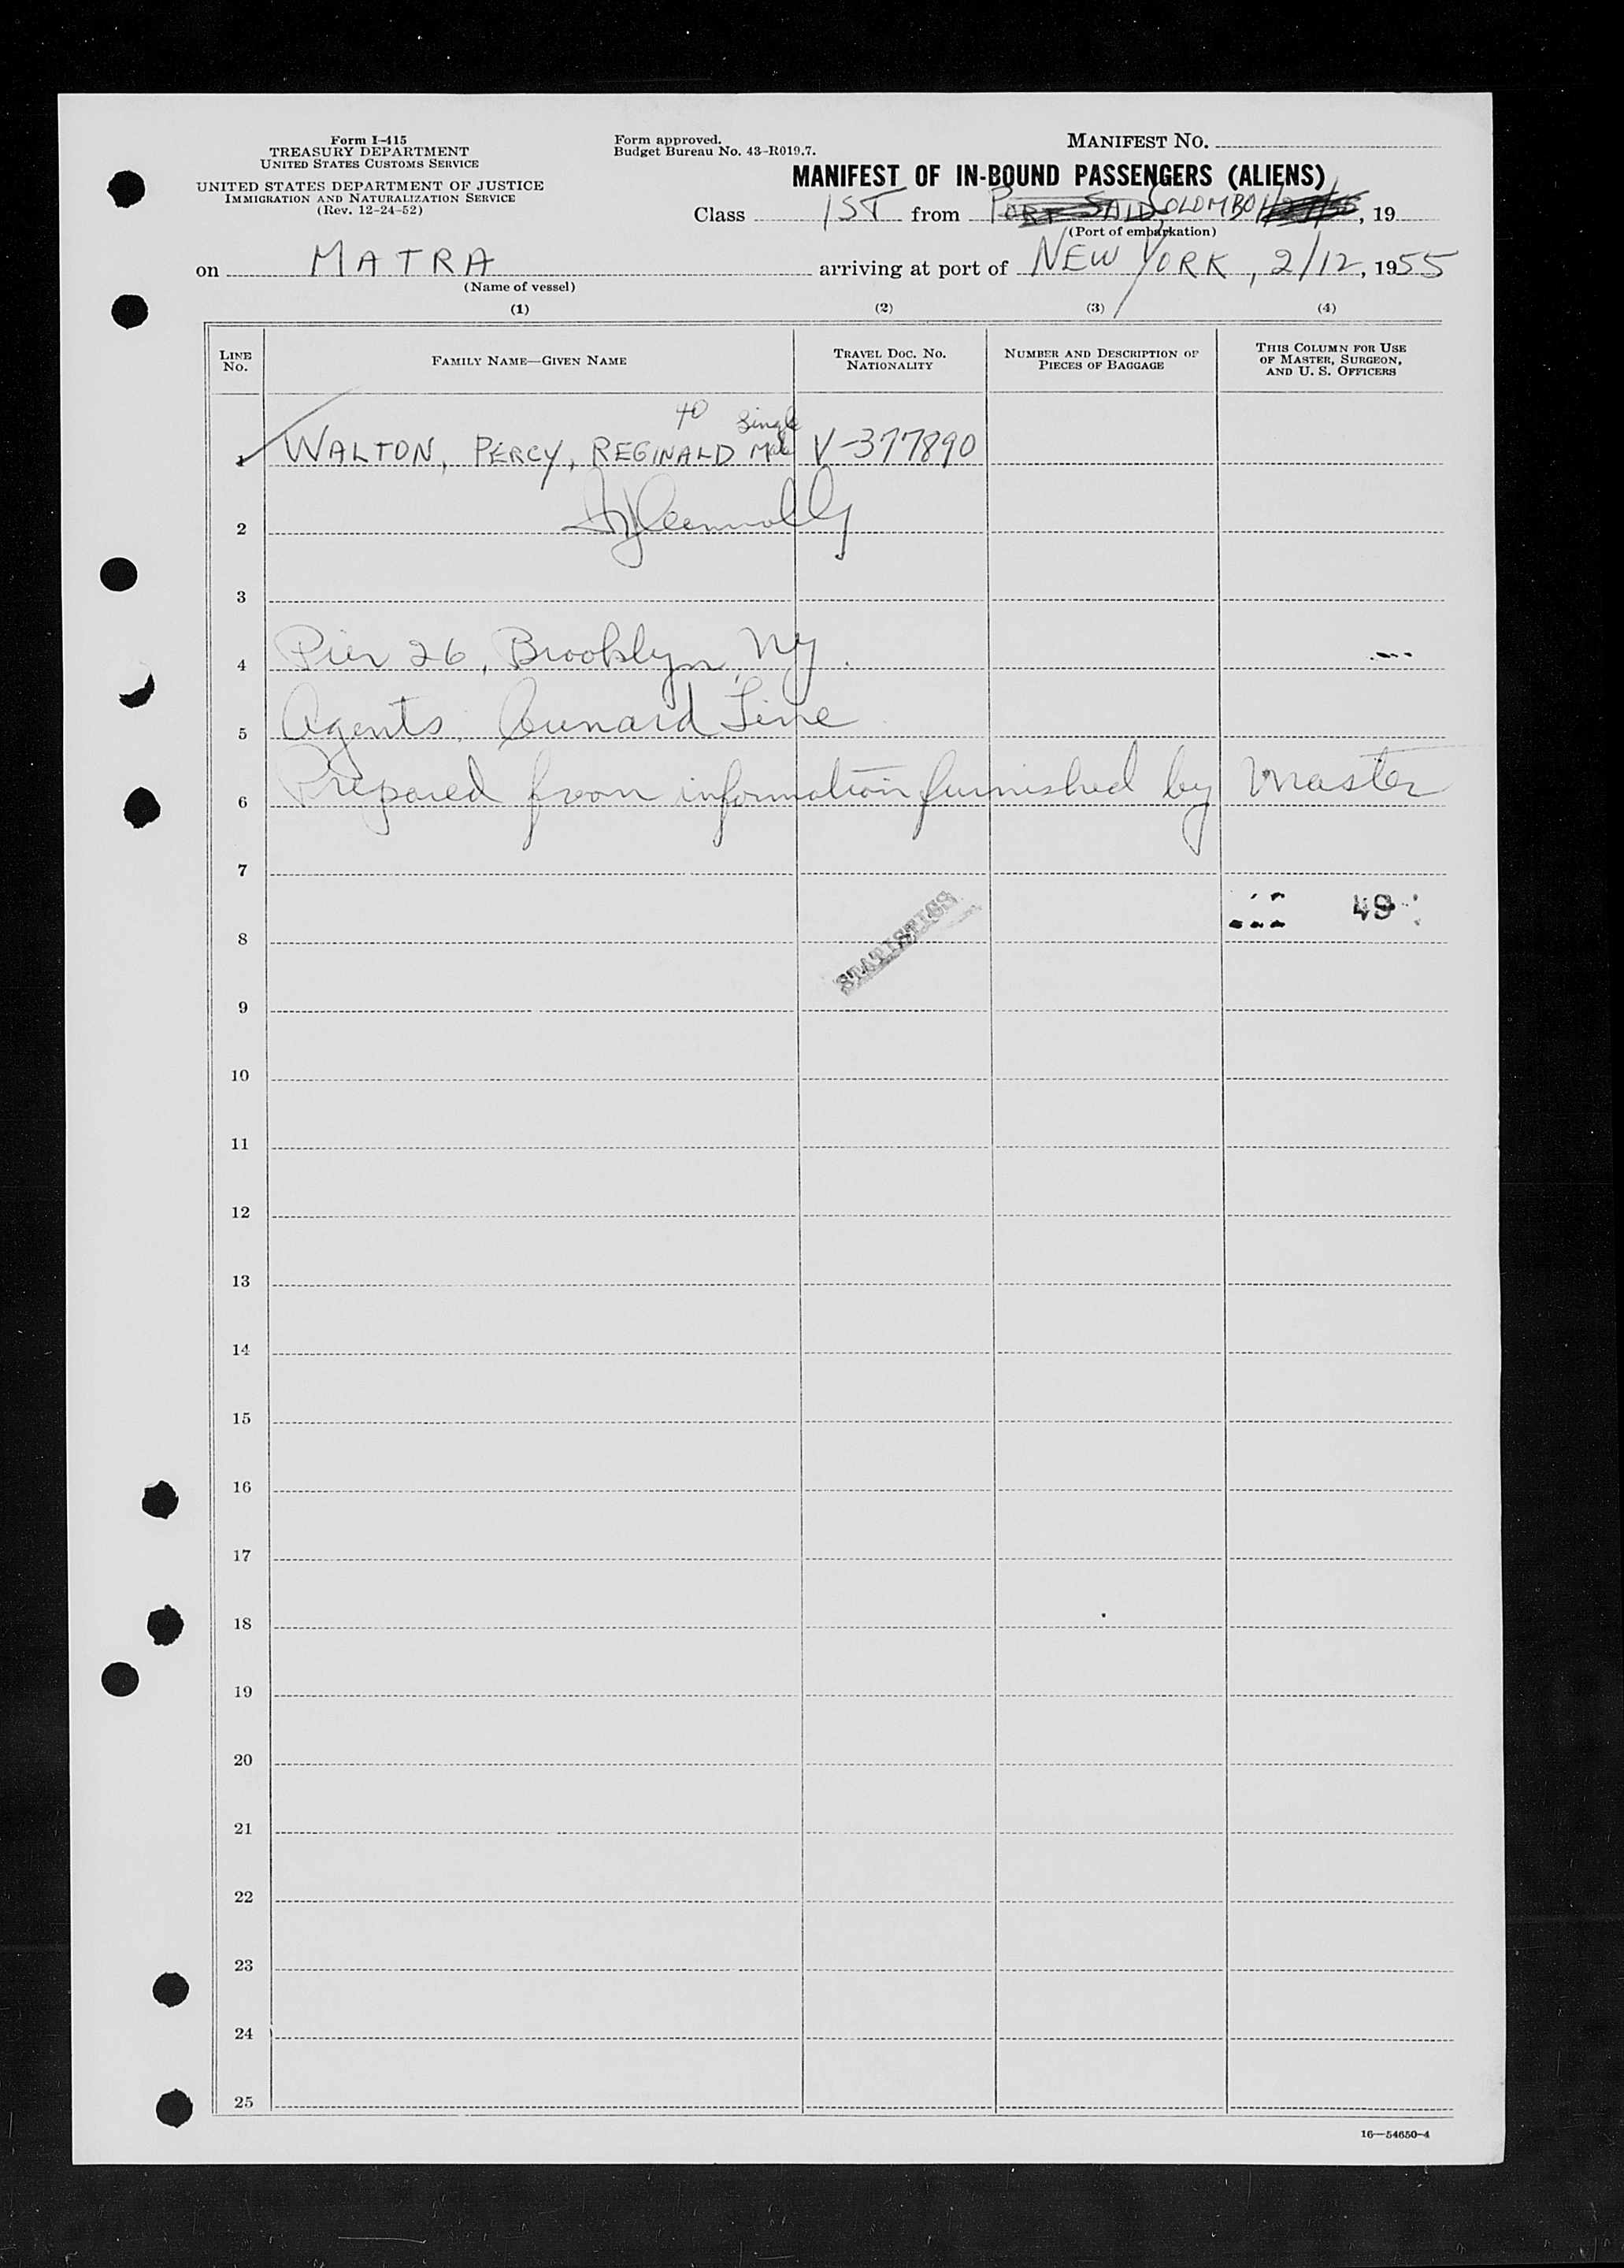 Form I-415
TREASURY DEPARTMENT
UNITED STATES CUSTOMS SERVICE
UNITED STATES DEPARTMENT OF JUSTICE
IMMIGRATION AND NATURALIZATION SERVICE
(Rev. 12-24-52)
Form approved.
Budget Bureau No. 43-R019.7.
MANIFEST NO.
MANIFEST OF IN-BOUND PASSENGERS (ALIENS)
Class 1ST from PORT SAID COLOMBO, 19
(Port of embarkation)
on MATRA arriving at port of NEW YORK, 2/12, 1955
(Name of vessel)
(1) (2) (3) (4)
LINE NO.
FAMILY NAME—GIVEN NAME
TRAVEL DOC. NO.
NATIONALITY
NUMBER AND DESCRIPTION OF
PIECES OF BAGGAGE
THIS COLUMN FOR USE
OF MASTER, SURGEON,
AND U. S. OFFICERS
40 Single
1 WALTON, PERCY, REGINALD Male V-377890
2
3
4 Pier 26, Brooklyn, NY.
5 Agents, Cunard Line
6 Prepared from information furnished by Master
7
49
8
STATISTICS
9
10
11
12
13
14
15
16
17
18
19
20
21
22
23
24
25
16—54650-4